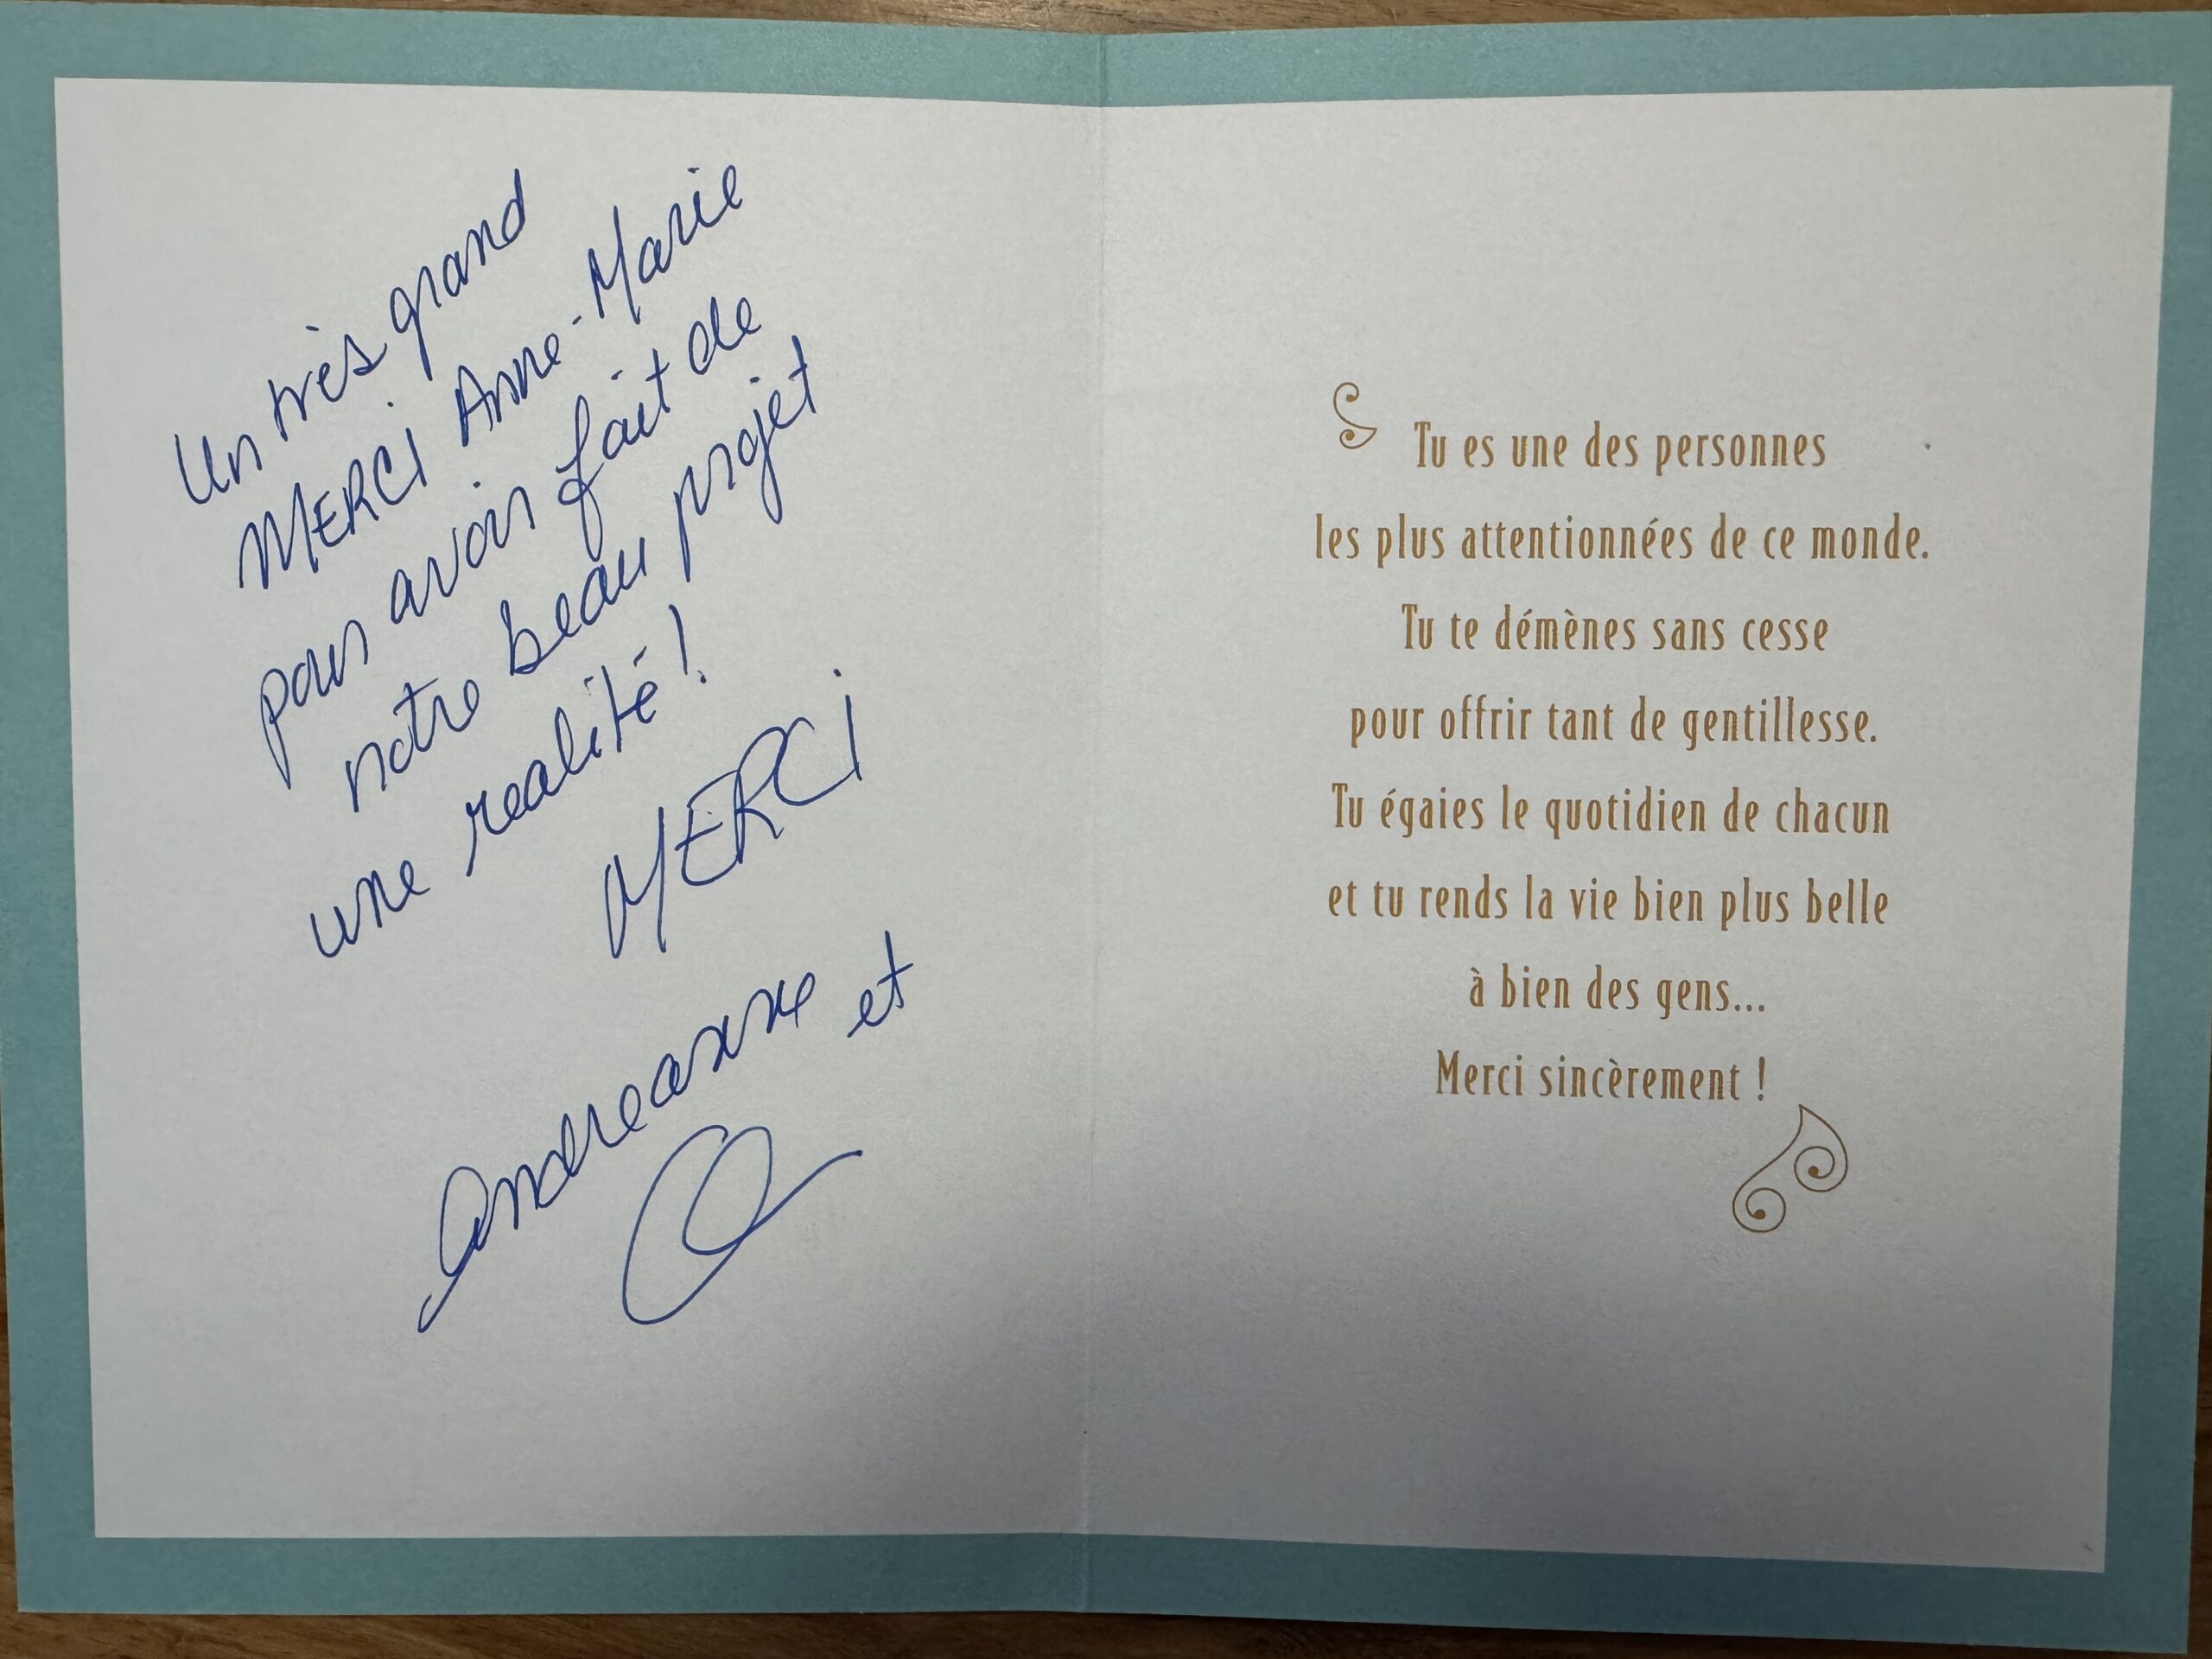 Un très grand
MERCI Anne-Marie
pour avoir fait de
notre beau projet
une réalité !
MERCI
Andréanne et
Tu es une des personnes
les plus attentionnées de ce monde.
Tu te démènes sans cesse
pour offrir tant de gentillesse.
Tu égaies le quotidien de chacun
et tu rends la vie bien plus belle
à bien des gens...
Merci sincèrement !